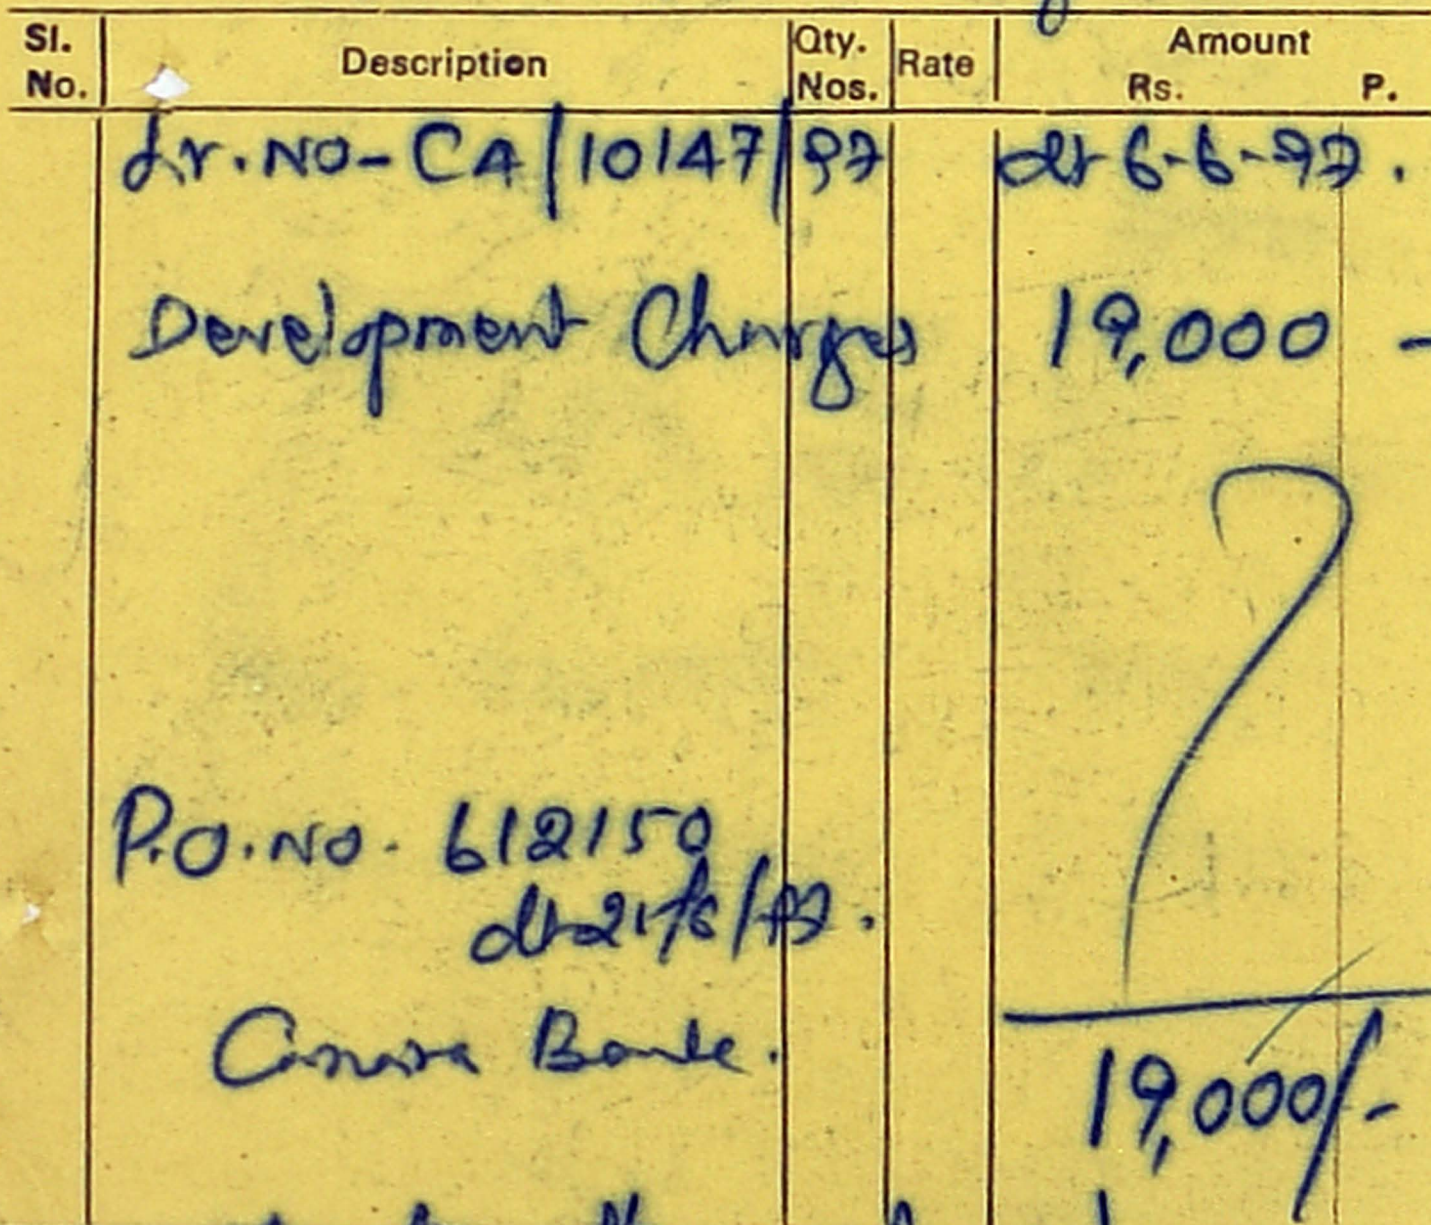 Sl. No. Description Qty. Nos. Rate Amount Rs. P.
Lr. No - CA/10147/97 dt 6-6-97.
Development Charges 19,000 -
P.O. No. 612150
dt 21/6/97.
Canara Bank.
19,000/-